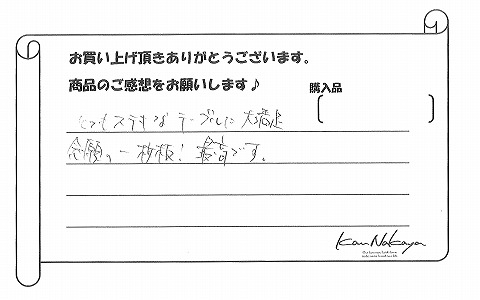 お買い上げ頂きありがとうございます。
商品のご感想をお願いします♪
購入品
とってもステキなテーブルに大満足
念願の一枚板！最高です。
Kan Nakaya